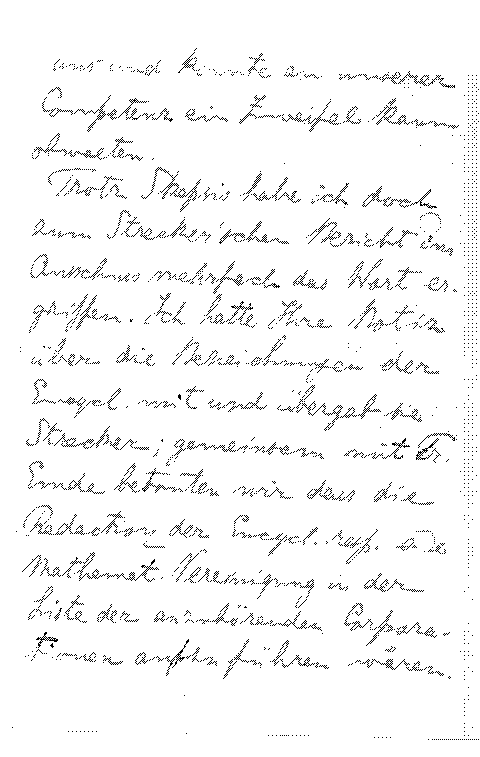 uns und konnte an unserer
Competenz ein Zweifel kaum
obwalten.
Trotz Skepsis habe ich doch
zum Strecker'schen Bericht im
Anschluss mehrfach das Wort er-
griffen. Ich hatte Ihre Notiz
über die Beziehungen der
Encycl. mit und übergab sie
Strecker; gemeinsam mit Fr.
Emde betonten wir dass die
Redaction der Encycl. resp. die
Mathemat. Vereinigung in der
Liste der anzuhörenden Corpora-
tionen aufzuführen wären.